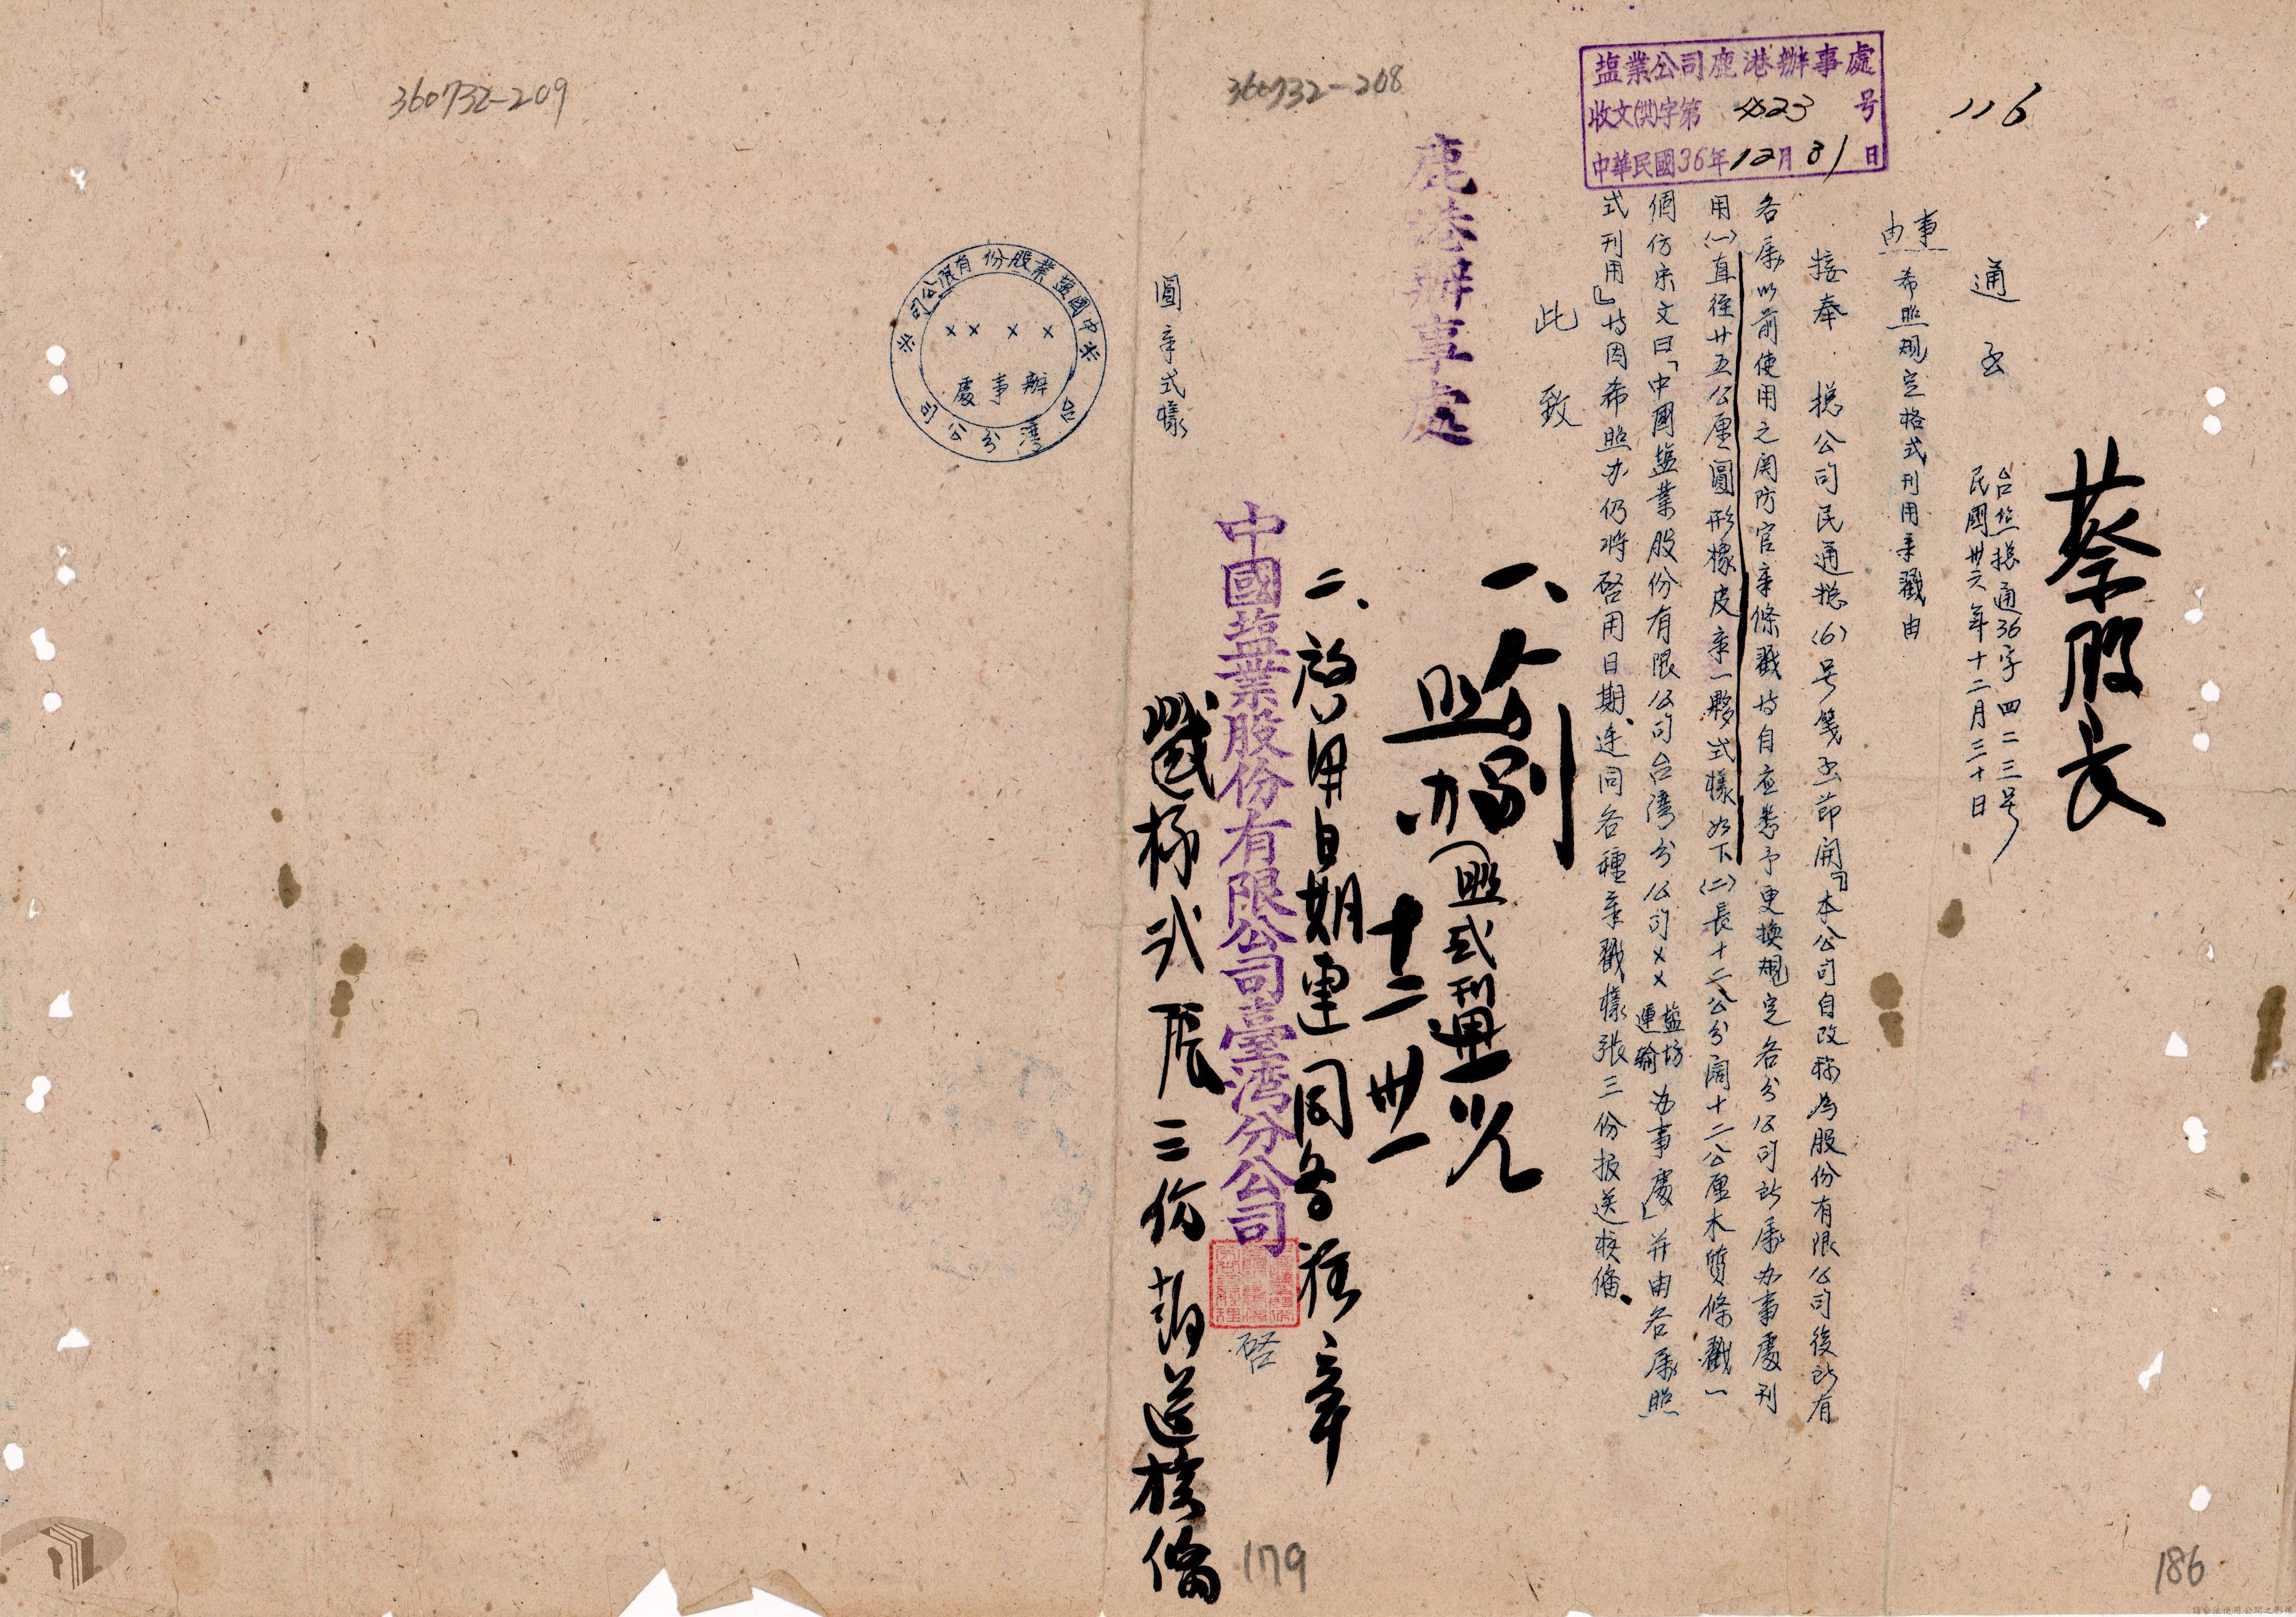 116
蔡股長
塩業公司鹿港辦事處
收文(洪)字第 4323 号
中華民國36年12月31日
通函
台塩總通36字四二三号
民國卅六年十二月三十日
事由
希照規定格式刊用章戳由
接奉 總公司民通總(6)号箋函節開『本公司自改称為股份有限公司後所有
各屬以前使用之関防官章條戳均自應悉予更換規定各分公司所屬办事處刊
用(一)直徑廿五公厘圓形橡皮章一夥式樣如下(二)長十二公分濶十二公厘木質條戳一
個仿宋文曰「中國塩業股份有限公司台灣分公司××塩場運輸办事處」并由各屬照
式刊用』等因希照办仍将啓用日期連同各種章戳樣張三份报送核備
此 致
鹿港辦事處
照办
(照式刊用
十二 卅一
二、啟用日期連同各種章
戳樣式 三份 送核備
中國塩業股份有限公司臺灣分公司
啓
圓章式樣
中國塩業股份有限公司
××××
辦事處
台灣分公司
360732-208
360732-209
179
186